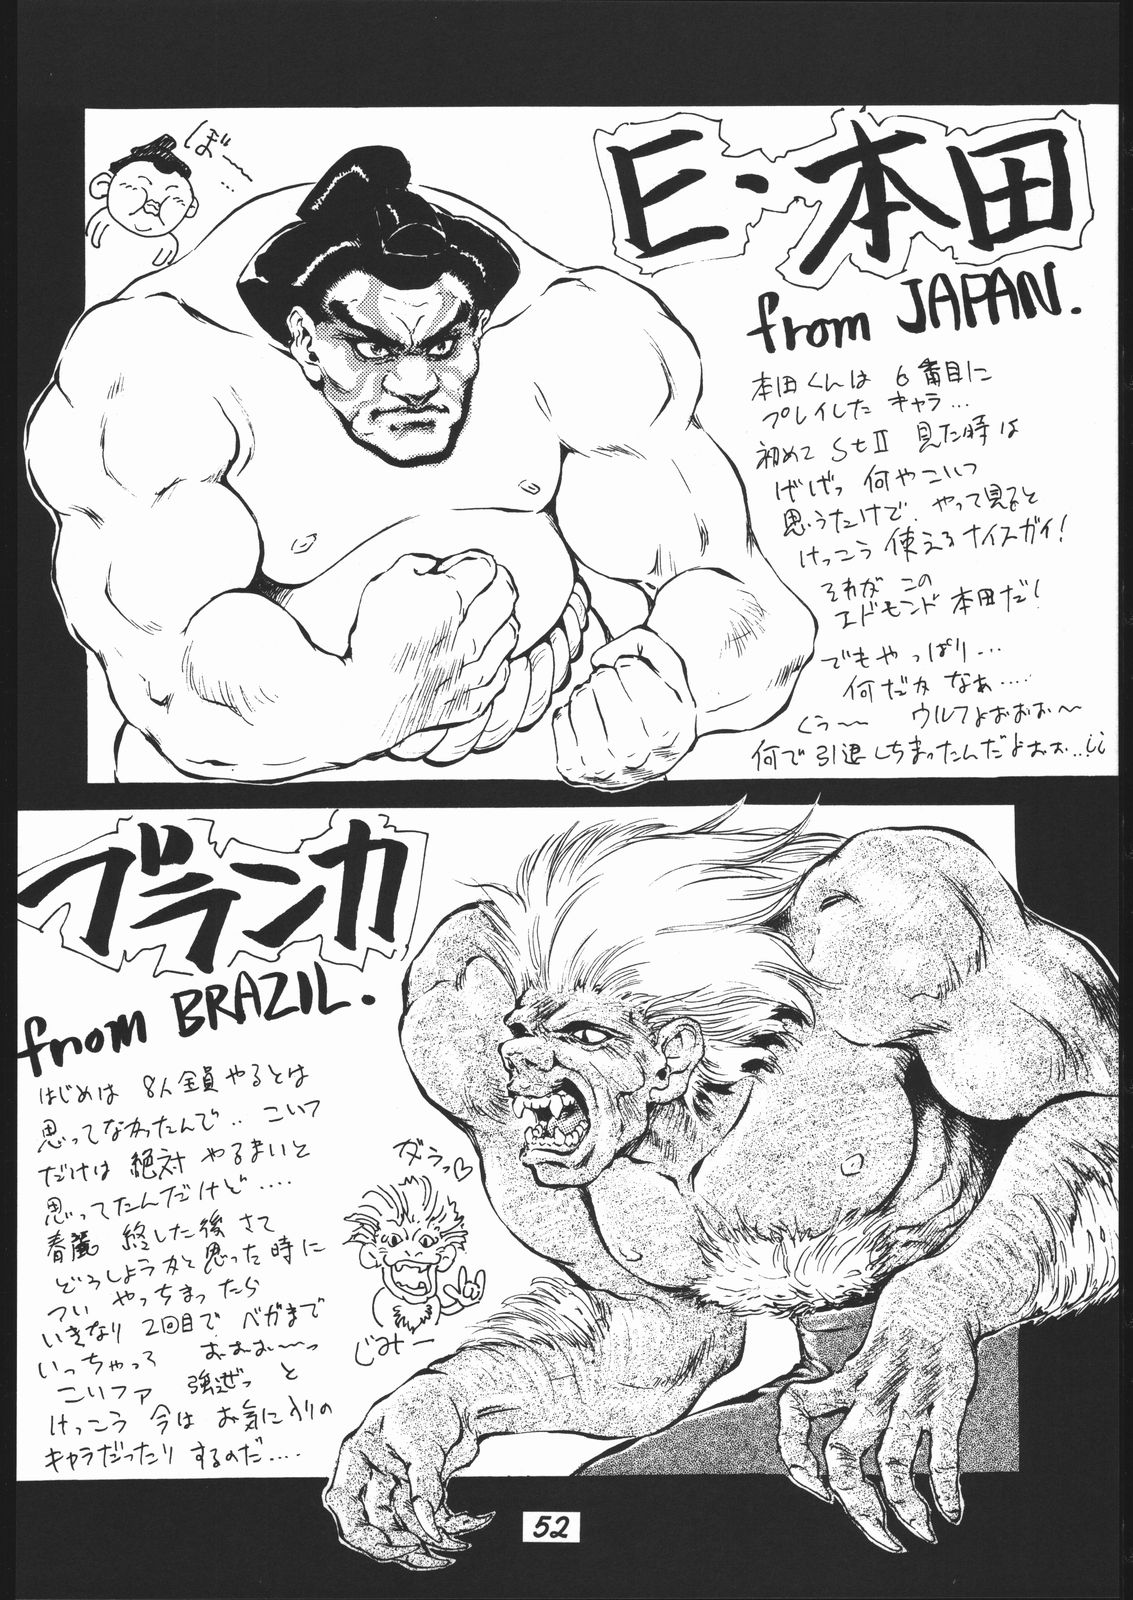 ぼー…
E・本田
from JAPAN.
本田くんは 6番目に
プレイした キャラ…
初めて StⅡ 見た時は
げげっ 何やこいつ
思うたけど、やって見ると
けっこう 使える ナイスガイ!
それが この
エドモンド 本田だ!
でも やっぱり…
何だか なぁ….
くぅ〜 ウルフよぉぉぉ〜
何で 引退しちまったんだよぉぉ…
ブランカ
from BRAZIL.
はじめは 8人全員 やるとは
思ってなかったんで‥ こいつ
だけは 絶対 やるまいと
思ってたんだけど….
春麗 終した後 さて
どうしようかと思った時に
つい やっちまったら
いきなり 2回目で ベガまで
いっちゃって おおお〜っ
こいつァ 強ぜっ と
けっこう 今は お気に入りの
キャラだったり するのだ….
ガうっ♡
じみー
52